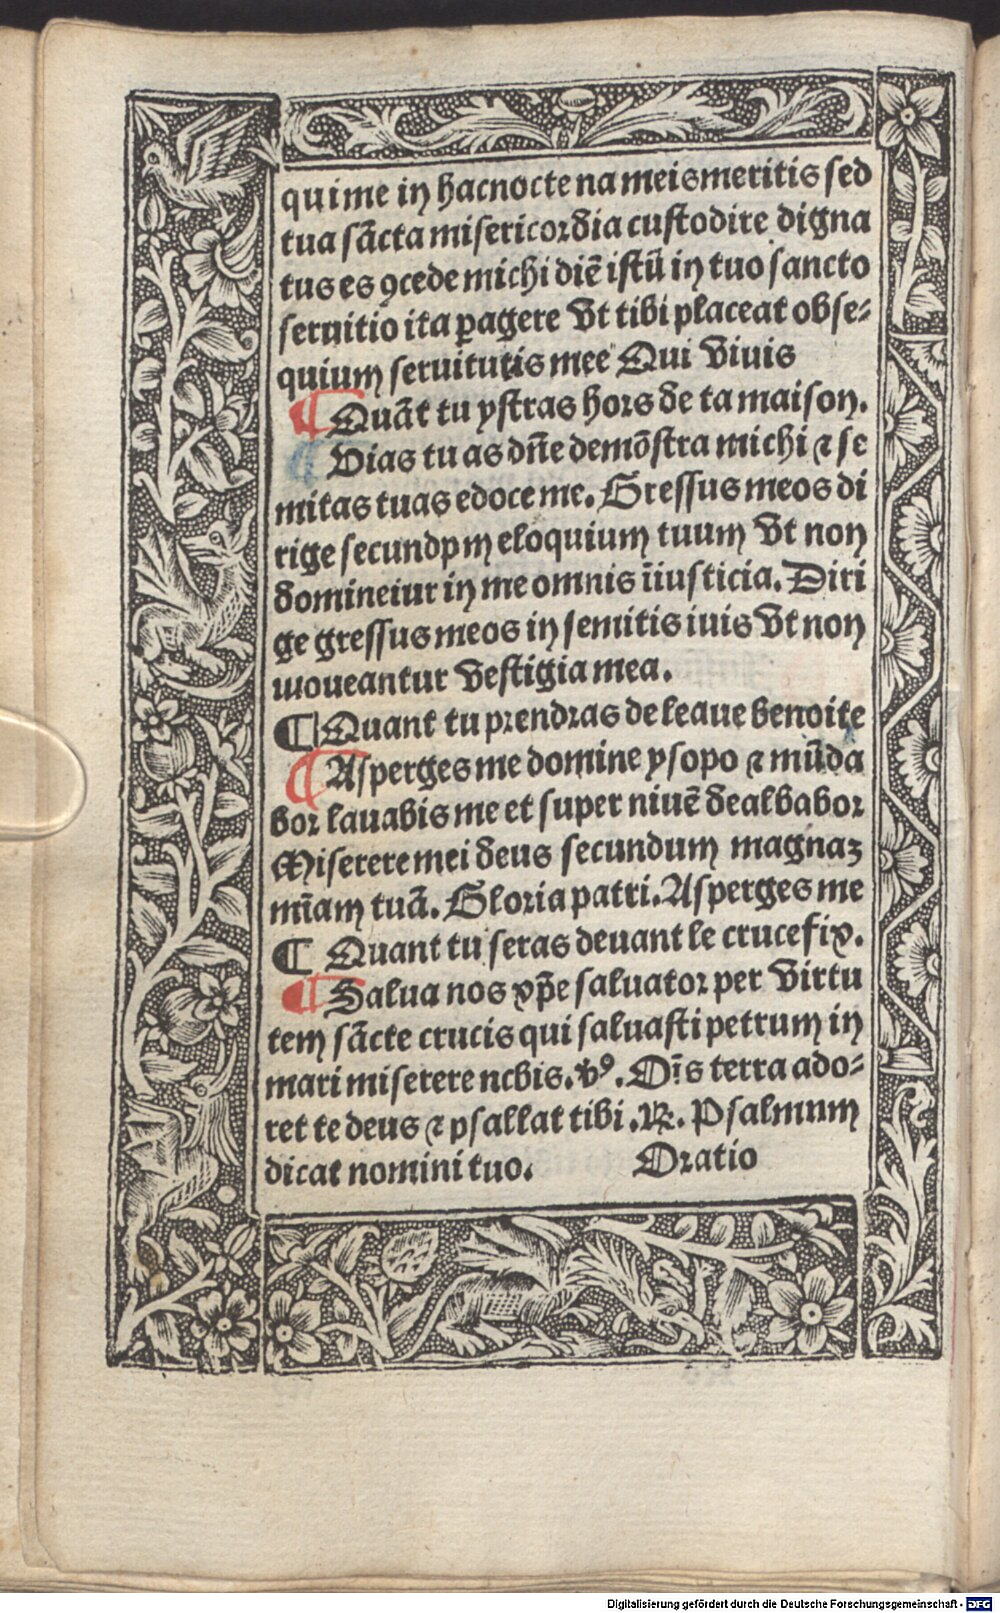 qui me in hac nocte na meis meritis sed
tua sācta misericordia custodire digna
tus es ꝯcede michi diē istū in tuo sancto
seruitio ita ꝑagere vt tibi placeat obse-
quium seruitutis mee Qui viuis
¶ Quāt tu ystras hors de ta maison.
¶ Vias tuas dn̄e demōstra michi ⁊ se
mitas tuas edoce me. Gressus meos di
rige secundpm eloquium tuum vt non
domineiur in me omnis īiusticia. Diri
ge gressus meos in semitis iuis vt non
woueantur vestigia mea.
¶ Quant tu prendras de leaue benoite
¶ Asperges me domine ysopo ⁊ mūda
bor lauabis me et super niuē dealbabor
Miserere mei deus secundum magnaꝫ
mīam tuā. Gloria patri. Asperges me
¶ Quant tu seras deuant le crucefix.
¶ Salua nos xp̄e saluator per virtu
tem sācte crucis qui saluasti petrum in
mari miserere ncbis. vꝰ. Oīs terra ado-
ret te deus ⁊ psallat tibi. ℞. Psalmum
dicat nomini tuo. Oratio
Digitalisierung gefördert durch die Deutsche Forschungsgemeinschaft - DFG